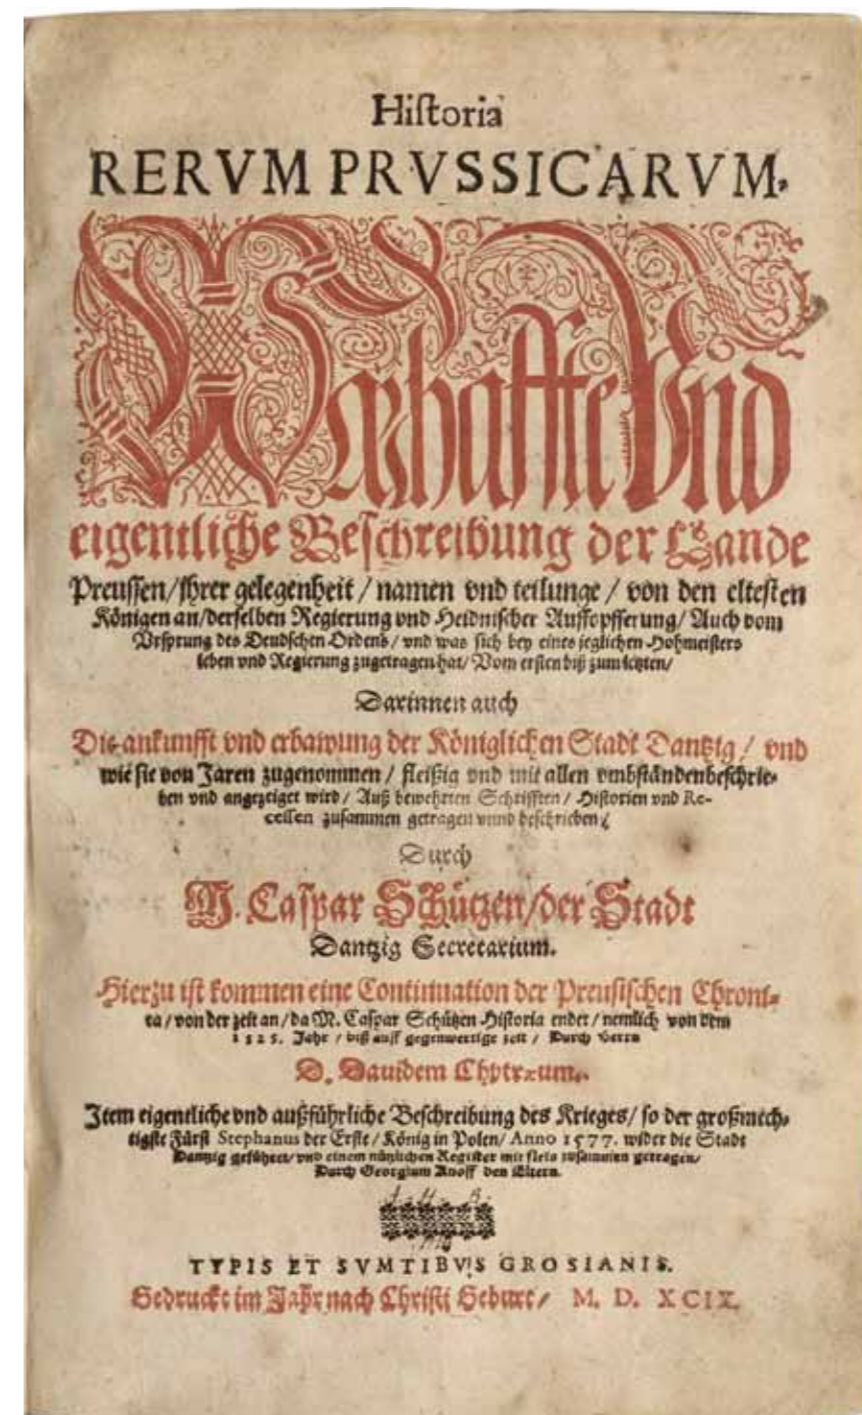 Historia
RERVM PRVSSICARVM.
Warhaffte Vnd
eigentliche Beschreibung der Lande
Preussen/ jhrer gelegenheit / namen vnd teilunge / von den eltesten
Königen an/ derselben Regierung vnd Heidnischer Auffopfferung/ Auch vom
Vrsprung des Deudschen Ordens/ vnd was sich bey eines jeglichen Hohmeisters
leben vnd Regierung zugetragen hat/ Vom ersten biß zum letzten/
Darinnen auch
Die ankunfft vnd erbawung der Königlichen Stadt Dantzig / vnd
wie sie von Jaren zugenommen / fleißig vnd mit allen vmbständen beschrie-
ben vnd angezeiget wird / Auß bewehrten Schrifften / Historien vnd Re-
cessen zusammen getragen vnnd beschrieben/
Durch
M. Caspar Schützen/ der Stadt
Dantzig Secretarium.
Hierzu ist kommen eine Continuation der Preusischen Chroni-
ca / von der zeit an / da M. Caspar Schützen Historia endet / nemlich von dem
1525. Jahr / biß auff gegenwertige zeit / Durch Herrn
D. Dauidem Chytræum.
Item eigentliche vnd außführliche Beschreibung des Krieges/ so der großmech-
tigste Fürst Stephanus der Erste / König in Polen / Anno 1577. wider die Stadt
Dantzig geführet/ vnd einem nützlichen Register mit fleis zusammen getragen/
Durch Georgium Knoff den Eltern.
TYPIS ET SVMTIBVS GROSIANIS.
Gedruckt im Jahr nach Christi Geburt / M. D. XCIX.